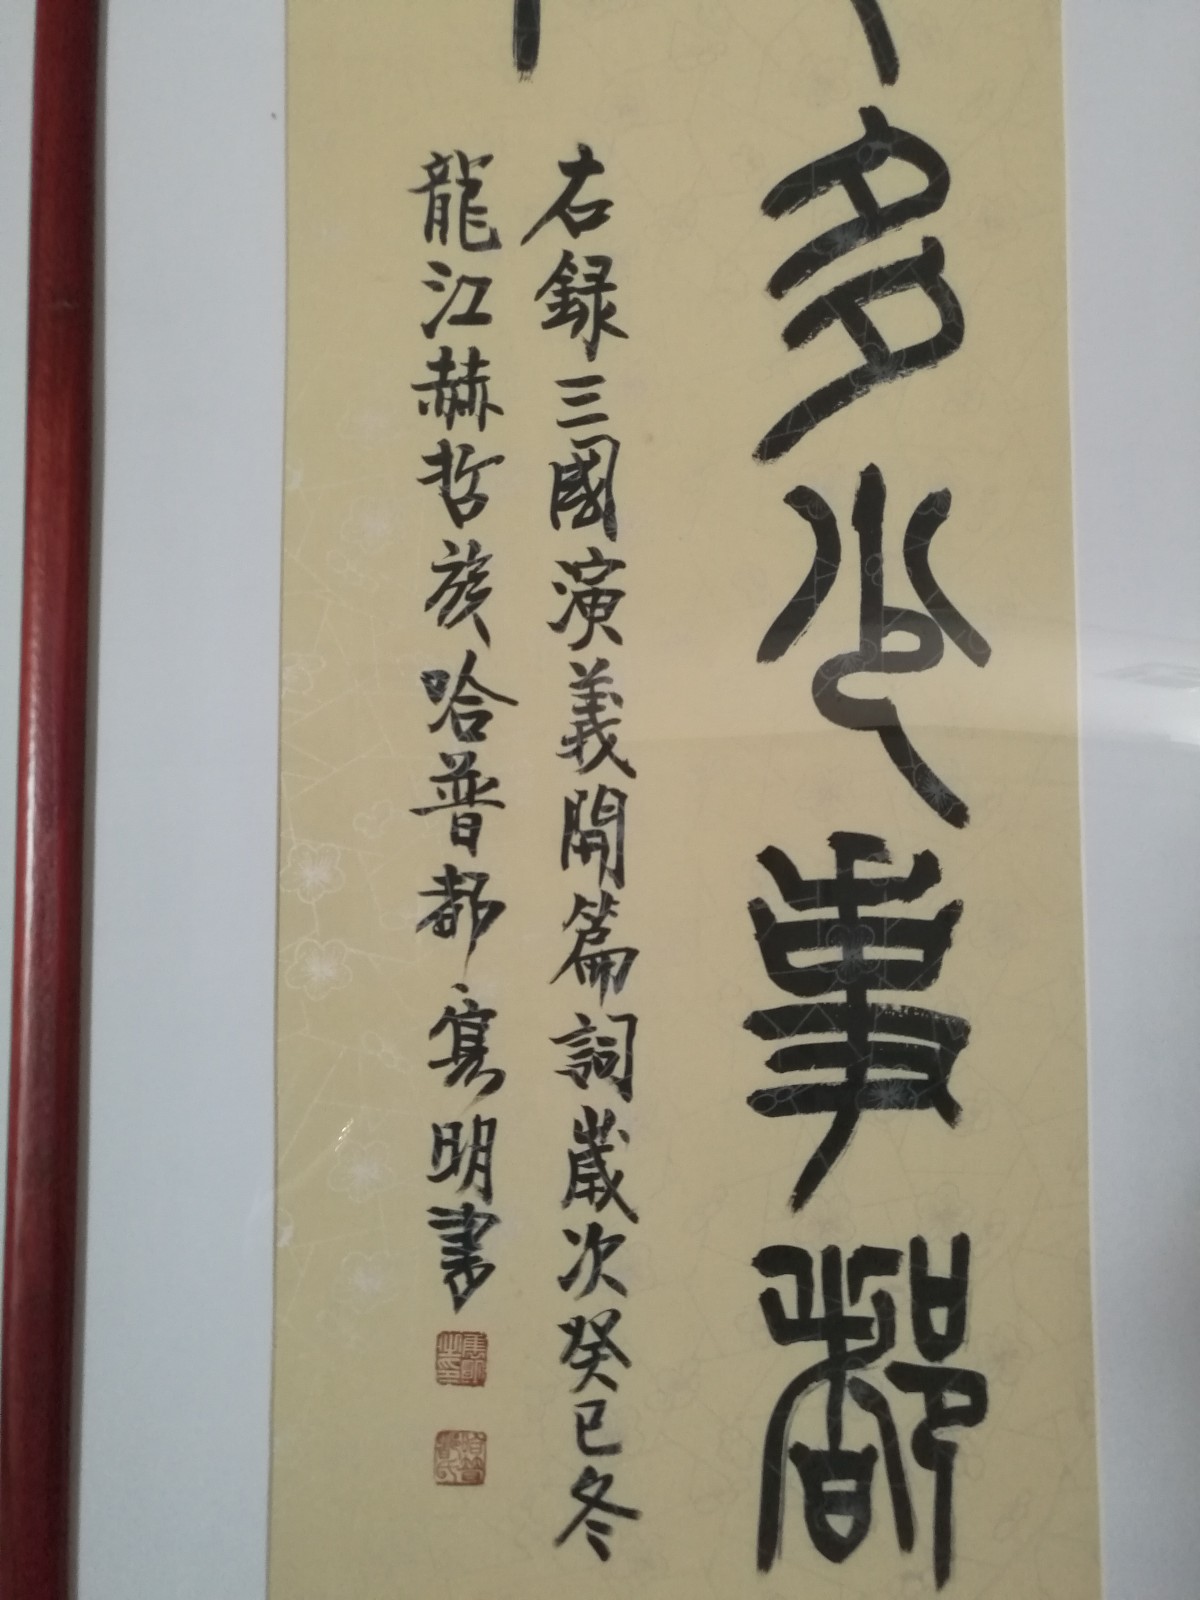 多少事都
右録三國演義開篇詞歲次癸巳冬
龍江赫哲族哈普都寯明書